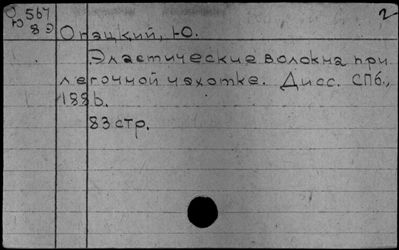 567
2
89
Опацкий, Ю.
Эластические волокна при
легочной чахотке. Дисс. СПб.,
1886.
83 стр.